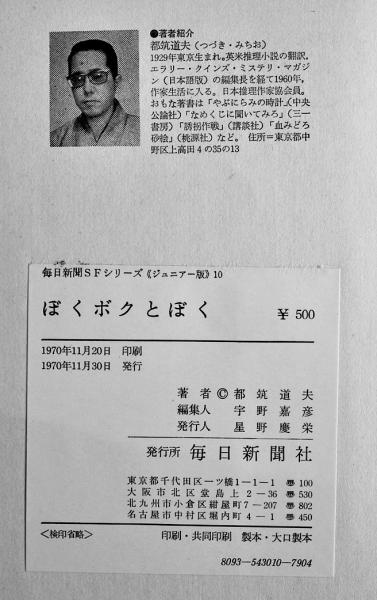 ●著者紹介
都筑道夫（つづき・みちお）
1929年東京生まれ。英米推理小説の翻訳，
エラリー・クイーンズ・ミステリ・マガジ
ン（日本語版）の編集長を経て1960年，
作家生活に入る。日本推理作家協会員。
おもな著書は「やぶにらみの時計」（中央
公論社）「なめくじに聞いてみろ」（三一
書房）「誘拐作戦」（講談社）「血みどろ
砂絵」（桃源社）など。 住所＝東京都中
野区上高田4の35の13
毎日新聞SFシリーズ《ジュニアー版》10
ぼくボクとぼく ¥ 500
1970年11月20日 印刷
1970年11月30日 発行
著者 © 都筑道夫
編集人 宇野嘉彦
発行人 星野慶栄
発行所 毎日新聞社
東京都千代田区一ツ橋1−1−1 〠100
大阪市北区堂島上2−36 〠530
北九州市小倉区紺屋町7−207 〠802
名古屋市中村区堀内町4−1 〠450
＜検印省略＞ 印刷・共同印刷 製本・大口製本
8093−543010−7904